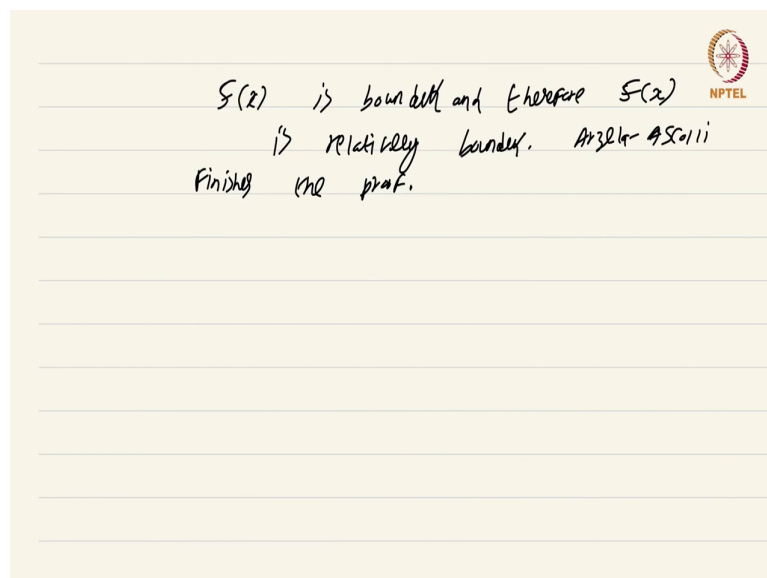 F(x) is bounded and therefore F(x)
NPTEL
is relatively bounded. Arzela-Ascolli
Finishes the proof.